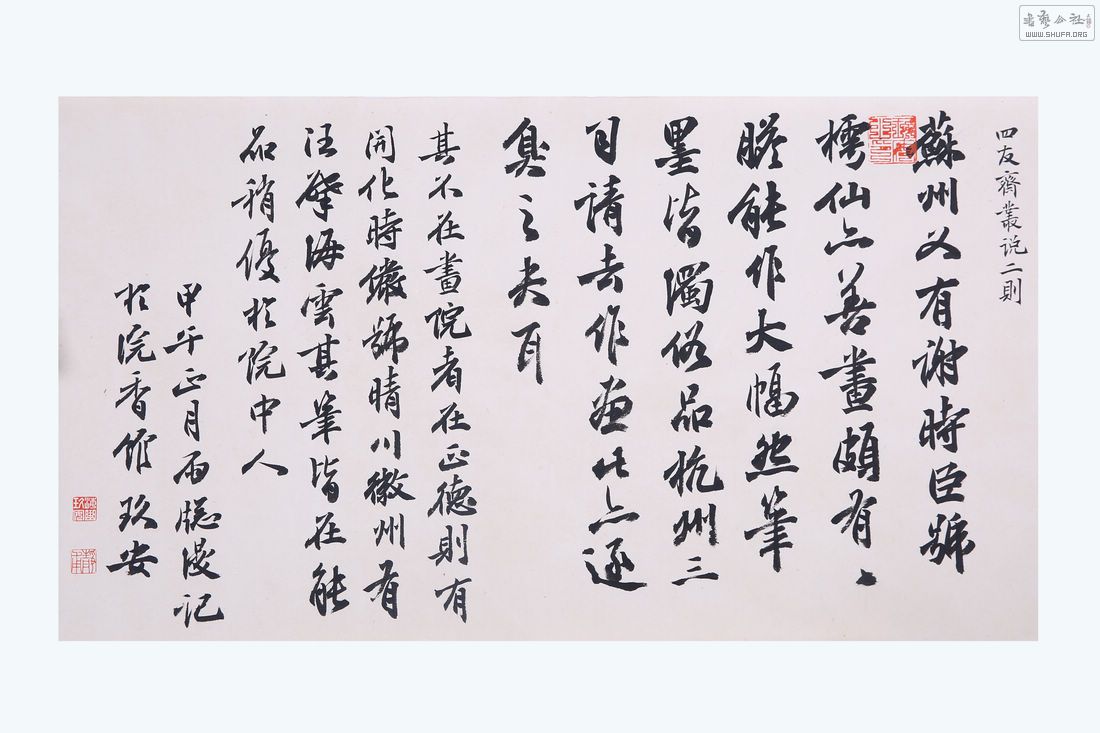 四友齋叢说二則
蘇州又有谢時臣號
樗仙亦善畫頗有
膽能作大幅然筆
墨皆濁俗品杭州三
司請去作画此亦逐
臭之夫耳
其不在畫院者在正德則有
開化時儼號晴川徽州有
汪肇海雲其筆皆在能
品稍優於院中人
甲午正月雨牕漫记
於浣香館 玖安
WWW.SHUFA.ORG